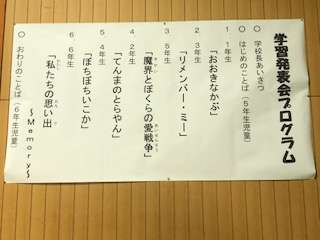 学習発表会プログラム
○ 学校長あいさつ
○ はじめのことば（５年生児童）
１ １年生
「おおきなかぶ」
２ ３年生
「リメンバー・ミー」
３ ５年生
「魔界とぼくらの愛戦争」
４ ２年生
「てんまのとらやん」
５ ４年生
「ぼちぼちいこか」
６ ６年生
「私たちの思い出
～Memory～
○ おわりのことば（６年生児童）